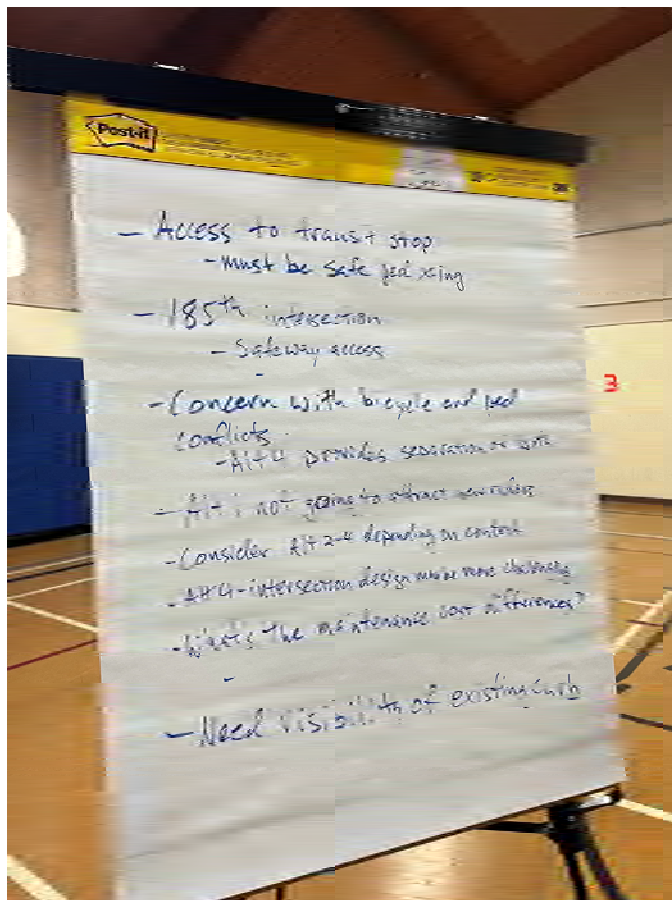 Post-it
- Access to transit stop
- must be safe ped xing
- 185th intersection
- Safeway access
- Concern with bicycle and ped
conflicts
- Alt 4 provides separation
- Alt 1 not going to attract new riders
- Consider Alt 2-4 depending on context
- Alt 4 - intersection design more challenging
- What's the maintenance cost differences?
-
- Need visibility of existing curb
3